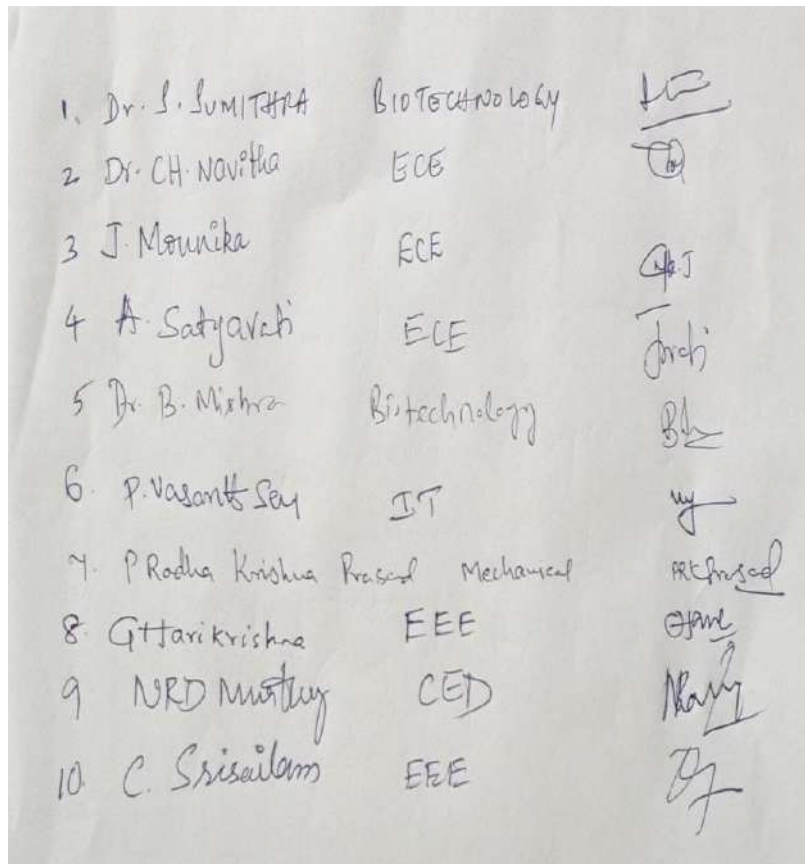 1. Dr. S. SUMITHRA BIOTECHNOLOGY
2 Dr. CH. Navitha ECE
3 J. Mounika ECE
4 A. Satyavati ECE
5 Dr. B. Mishra Biotechnology
6. P. Vasanth Sen IT
7. P Radha Krishna Prasad Mechanical PRKPrasad
8. G Harikrishna EEE
9 NRD Murthy CED
10. C. Srisailam EEE